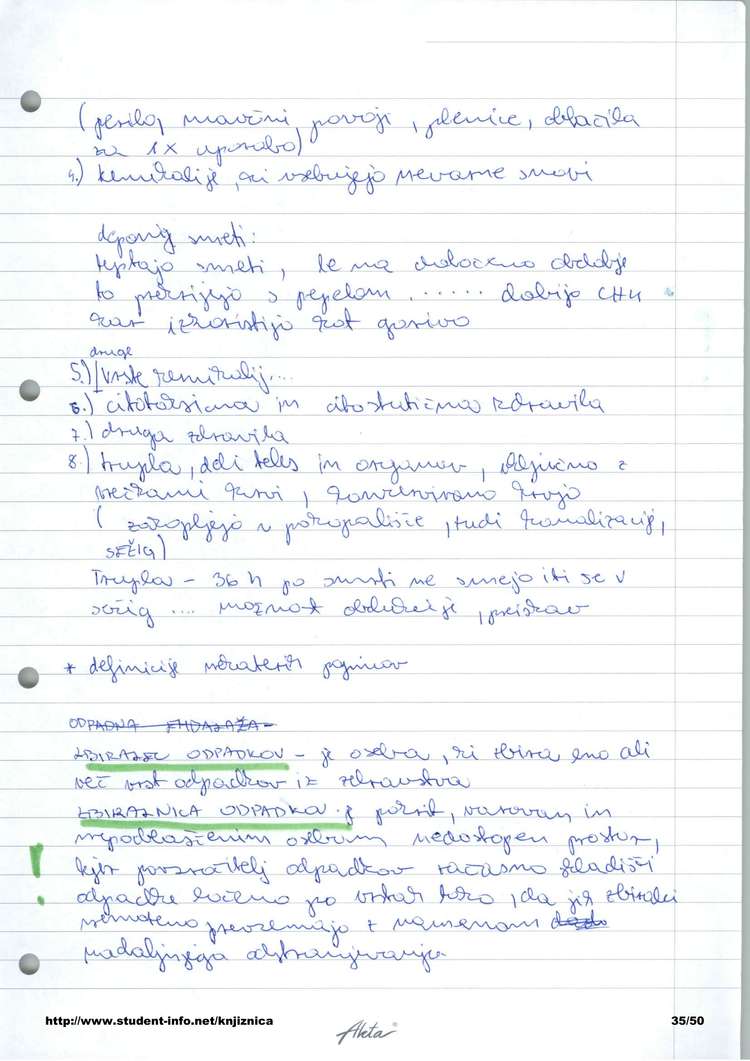 (perilo, mavčni povoji, plenice, oblačila
za 1x uporabo)
4.) kemikalije, ki vsebujejo nevarne snovi
deponij smeti:
teptajo smeti, le na določeno obdobje
to prekrijejo s pepelom ...... dobijo CH4
kar izkoristijo kot gorivo
druge
5.) vrste kemikalij...
6.) citotoksična in citostatična zdravila
7.) druga zdravila
8.) trupla, deli teles in organov, vključno z
vrečkami krvi, konzervirano krvjo
( zakopljejo v pokopališče, tudi kanalizacij,
SEŽIG)
Trupla - 36 h po smrti ne smejo iti še v
sežig .... možnost obdukcije, preiskav
* definicije nekaterih pojmov
ODPADNA EMBALAŽA-
ZBIRALEC ODPADKOV - je oseba, ki zbira eno ali
več vrst odpadkov iz zdravstva
ZBIRALNICA ODPADKOV je pokrit, varovan in
nepooblaščenim osebam nedostopen prostor,
kjer povzročitelj odpadkov začasno skladišči
odpadke ločeno po vrstah tako, da jih zbiralci
nemoteno prevzemajo z namenom
nadaljnjega odstranjevanja.
http://www.student-info.net/knjiznica
Aleta
35/50